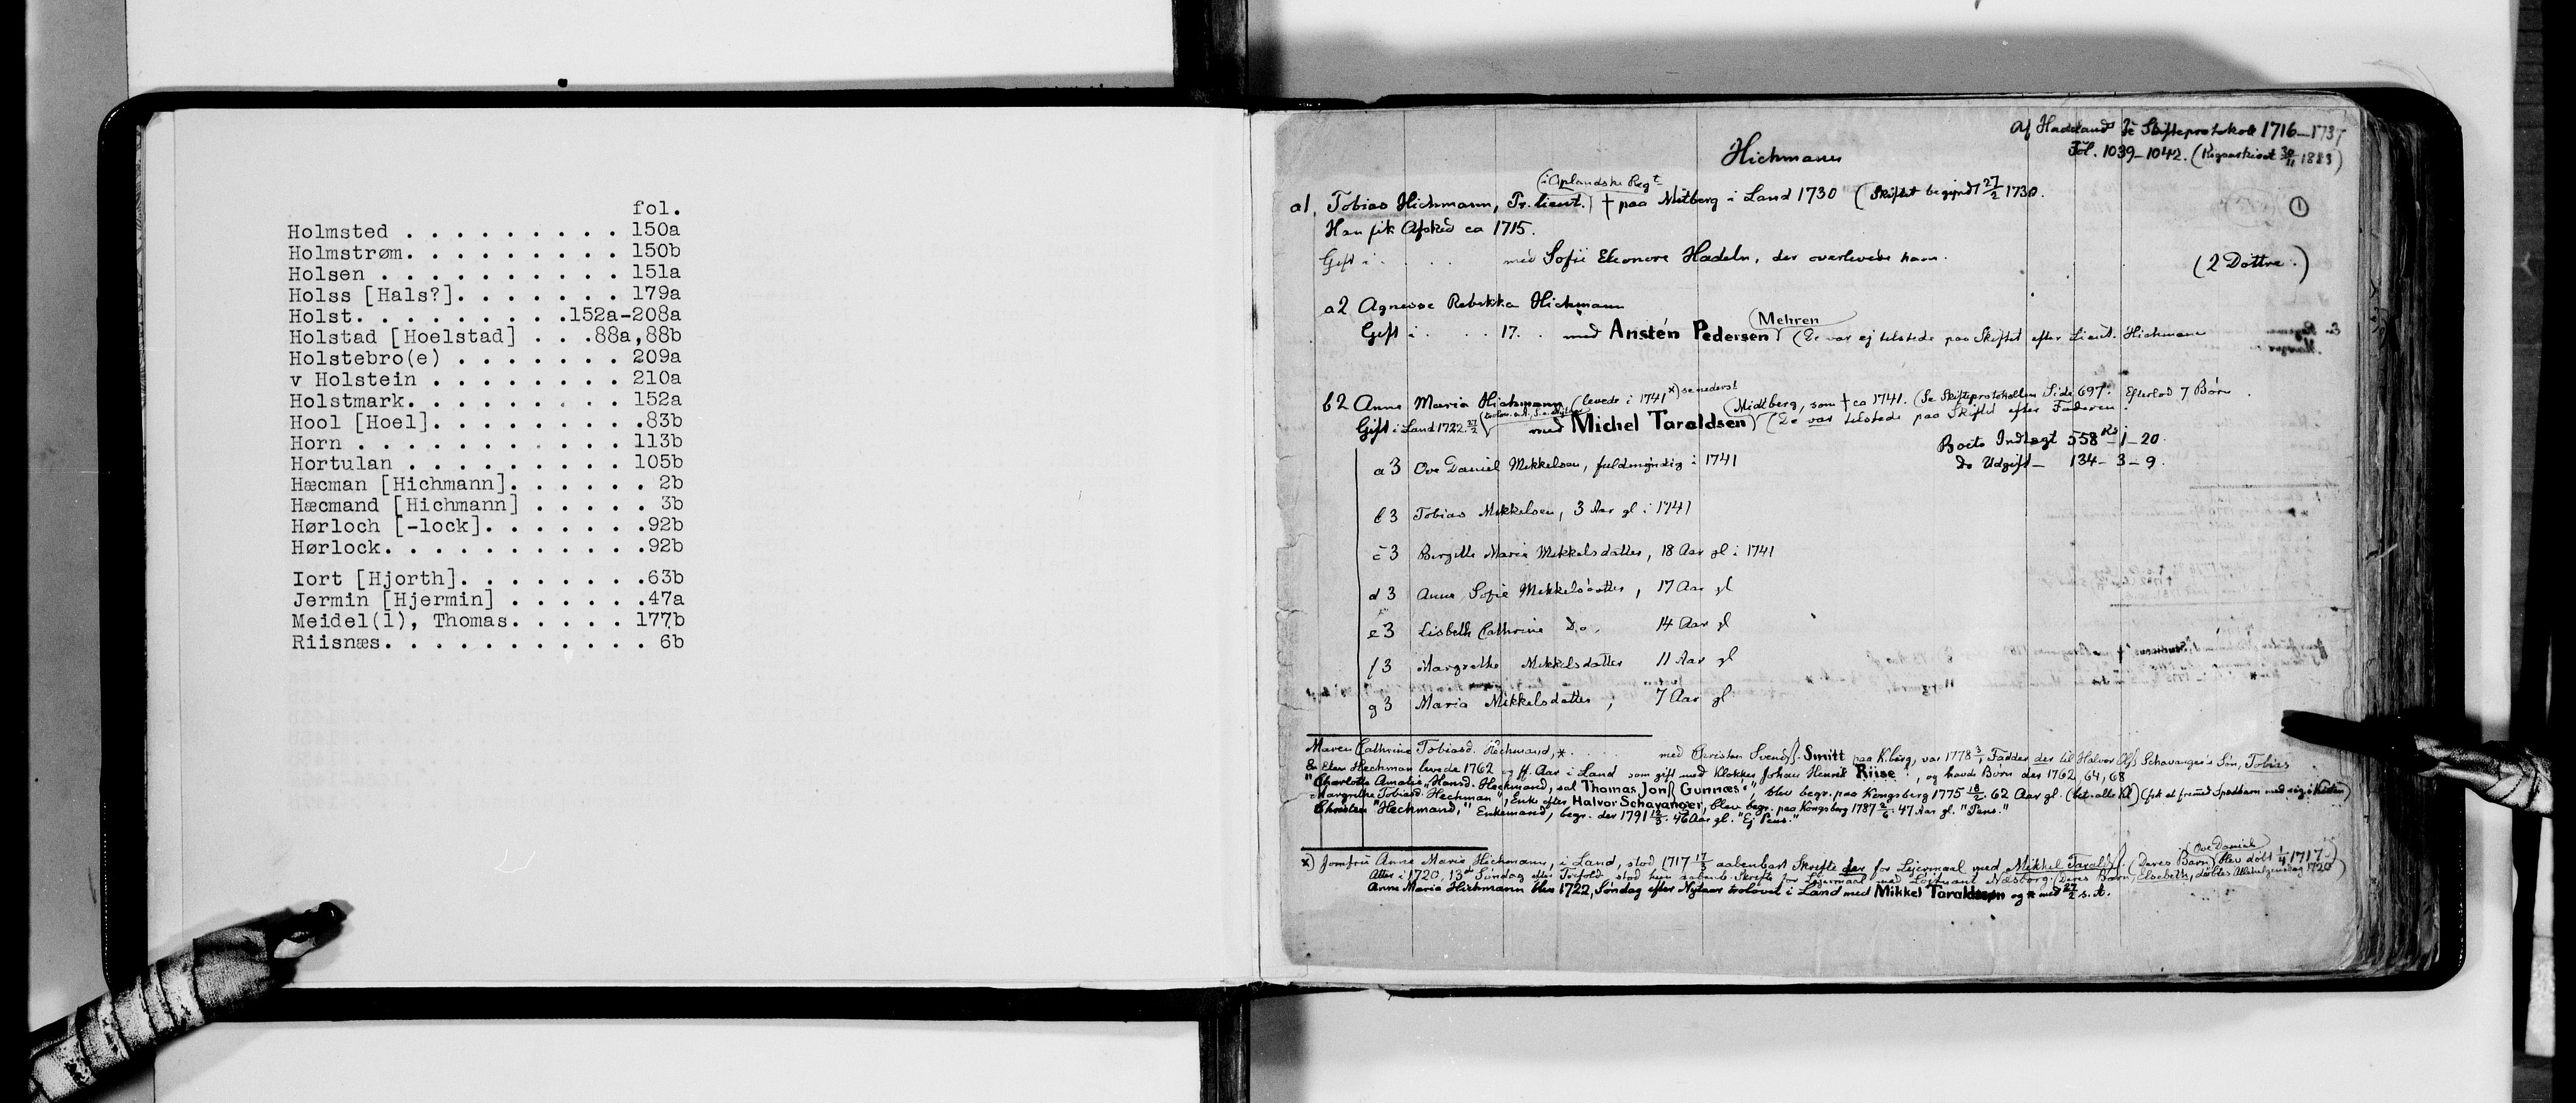 fol.
Holmsted . . . . . . . . . 150a
Holmstrøm. . . . . . . . . 150b
Holsen . . . . . . . . . . 151a
Holss [Hals?]. . . . . . . 179a
Holst. . . . . . . . . .152a-208a
Holstad [Hoelstad] . . .88a,88b
Holstebro(e) . . . . . . . 209a
v Holstein . . . . . . . . 210a
Holstmark. . . . . . . . . 152a
Hool [Hoel]. . . . . . . . .83b
Horn . . . . . . . . . . . 113b
Hortulan . . . . . . . . . 105b
Hæcman [Hichmann]. . . . . . 2b
Hæcmand [Hichmann] . . . . . 3b
Hørloch [-lock]. . . . . . .92b
Hørlock. . . . . . . . . . .92b
Iort [Hjorth]. . . . . . . .63b
Jermin [Hjermin] . . . . . .47a
Meidel(l), Thomas. . . . . 177b
Riisnæs. . . . . . . . . . . 6b
Af Hadelands Skifteprotokol 1716-1737
Fol. 1039-1042. (30/11 1883)
Hichmann
(i Oplandske Regt
a1, Tobias Hichmann, Pr. lieut.) † paa Midberg i Land 1730 (Skiftet begyndt 27/2 1730.
1
Han fik Afsked ca 1715.
Gift i . . . . med Sofie Eleonore Hadeln, der overlevede ham.
(2 Döttre.)
a2 Agnesse Rebekka Hichmann
Gift i . . . 17. . med Anstén Pedersen Mehren (De var ej tilstede paa Skiftet efter Lieut. Hichmann
b2 Anne Maria Hichmann (levede i 1741 x) se nederst
(Midtberg, som † ca 1741. (Se Skifteprotokollen Side 697. Efterlod 7 Børn.
Gift i Land 1722 27/2 med Michel Taraldsen) (De var tilstede paa Skiftet efter Faderen.
Boets Indtægt 558 Rd - 1 - 20.
Do Udgift - 134 - 3 - 9.
a3 Ove Daniel Mikkelsen, fuldmyndig i 1741
b3 Tobias Mikkelsen, 3 Aar gl i 1741
c3 Birgitte Maria Mikkelsdatter, 18 Aar gl i 1741
d3 Anne Sofie Mikkelsdatter, 17 Aar gl
e3 Lisbeth Cathrine Do, 14 Aar gl
f3 Margrethe Mikkelsdatter 11 Aar gl
g3 Maria Mikkelsdatter, 7 Aar gl
Maren Cathrine Tobiasd. Hechmand, * . . . . med Christen Svends. Smitt paa K.berg, var 1778 3/1 Fadder der til Halvor Schavanger's Søn, Tobias
En Hechman levede 1762 og ff. Aar i Land som gift med Klokker Johan Henrik Riise, og havde Børn der 1762, 64, 68
"Charlotte Amalie Hansd. Heckmand, sal Thomas Jons Gunnæs's" blev begr. paa Kongsberg 1775 18/2. 62 Aar gl. (fik et fremmed Spædbarn med sig i Kisten)
Margrethe Tobiasd. Hechman", Enke efter Halvor Schavanger, blev begr. paa Kongsberg 1787 2/6. 47 Aar gl. "Pens."
Christen "Hechmand," Enkemand, begr. der 1791 12/3. 46 Aar gl. "Ej Pens."
x) Jomfru Anne Marie Hichmann, i Land, stod 1717 17/3 aabenbart Skrifte der for Lejermaal med Mikkel Taralds. (Deres Barn Ove Daniel blev døbt 1/4 1717)
Atter i 1720, 13de Søndag efter Trefold. stod hun aabenb. Skrifte for Lejermaal med Løitnant Næsborg. (Deres Barn, Elsebeth, døbtes 1720
Anne Maria Hichmann blev 1722, Søndag efter Nytaar trolovet i Land med Mikkel Taraldsen og * med 27/2 s. A.